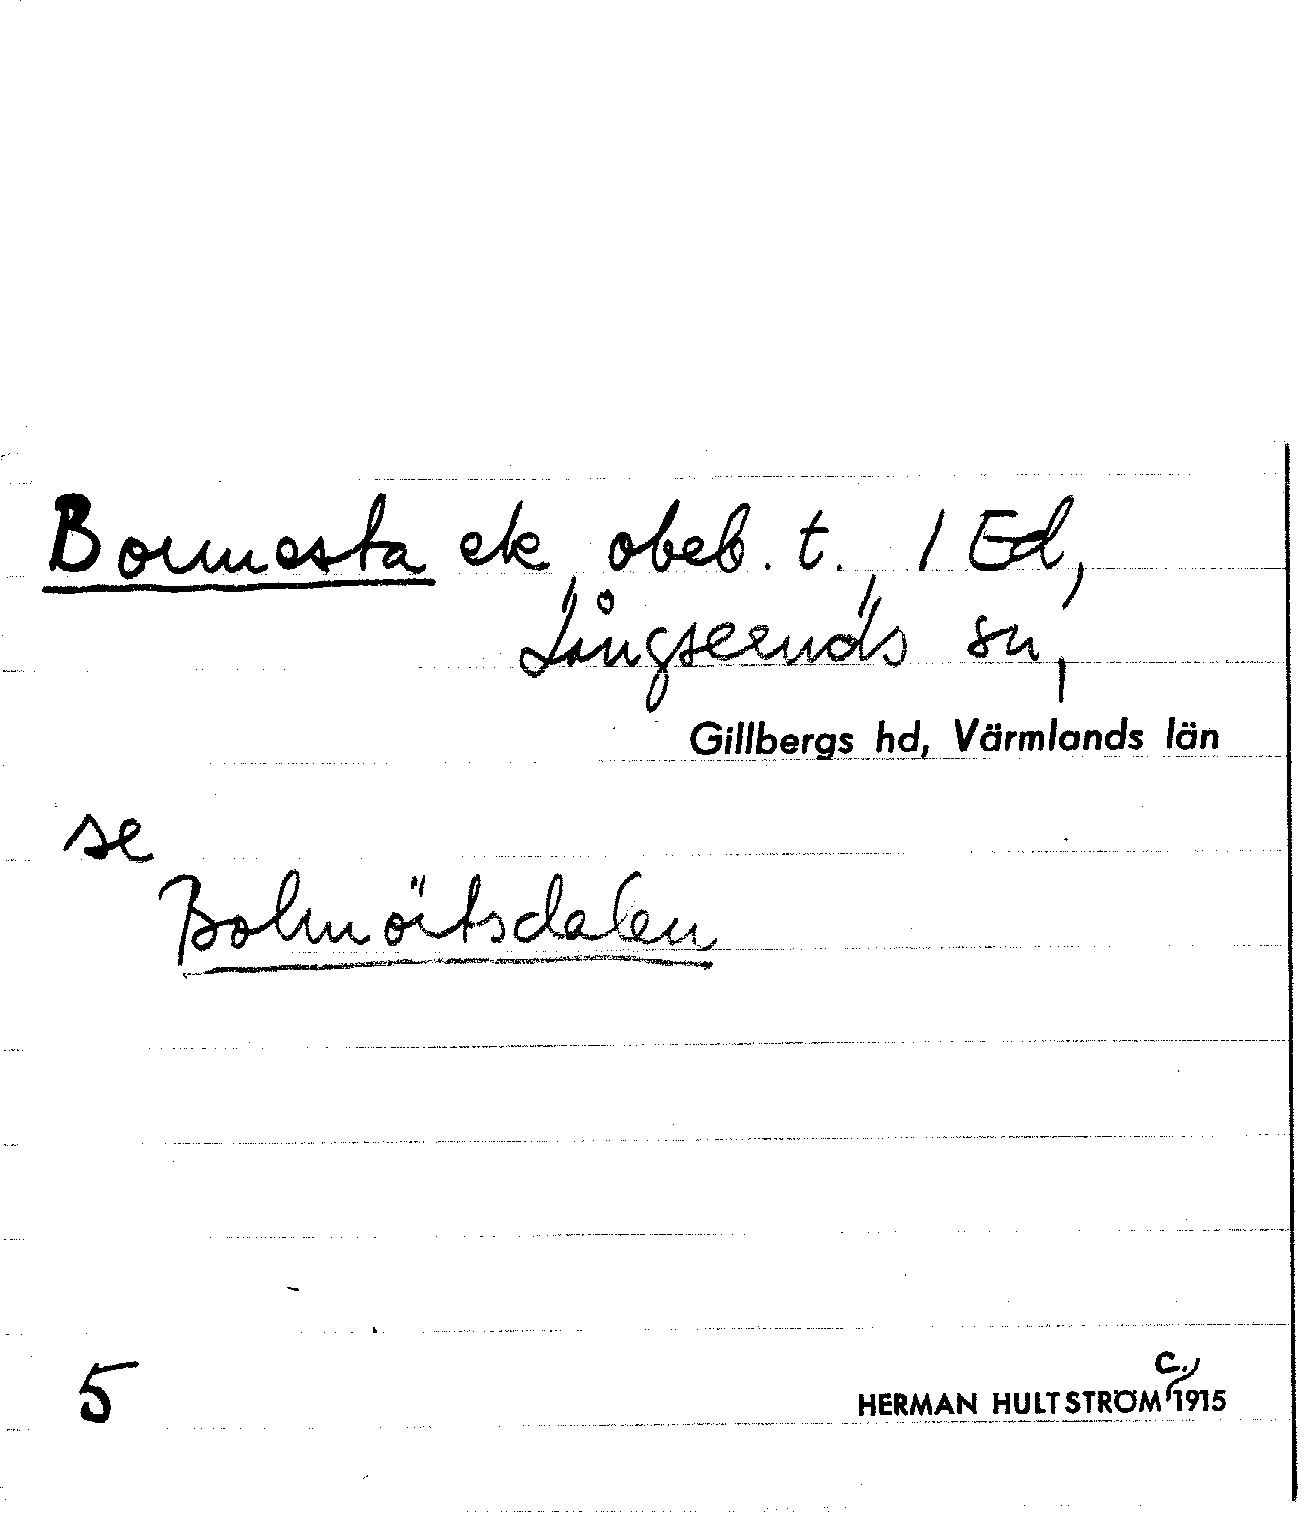 Bonnesta ek, obeb. t., 1 Ed,
Långseruds sn,
Gillbergs hd, Värmlands län
se
Bolmörtsdalen
5
C.,
HERMAN HULTSTRÖM 1915